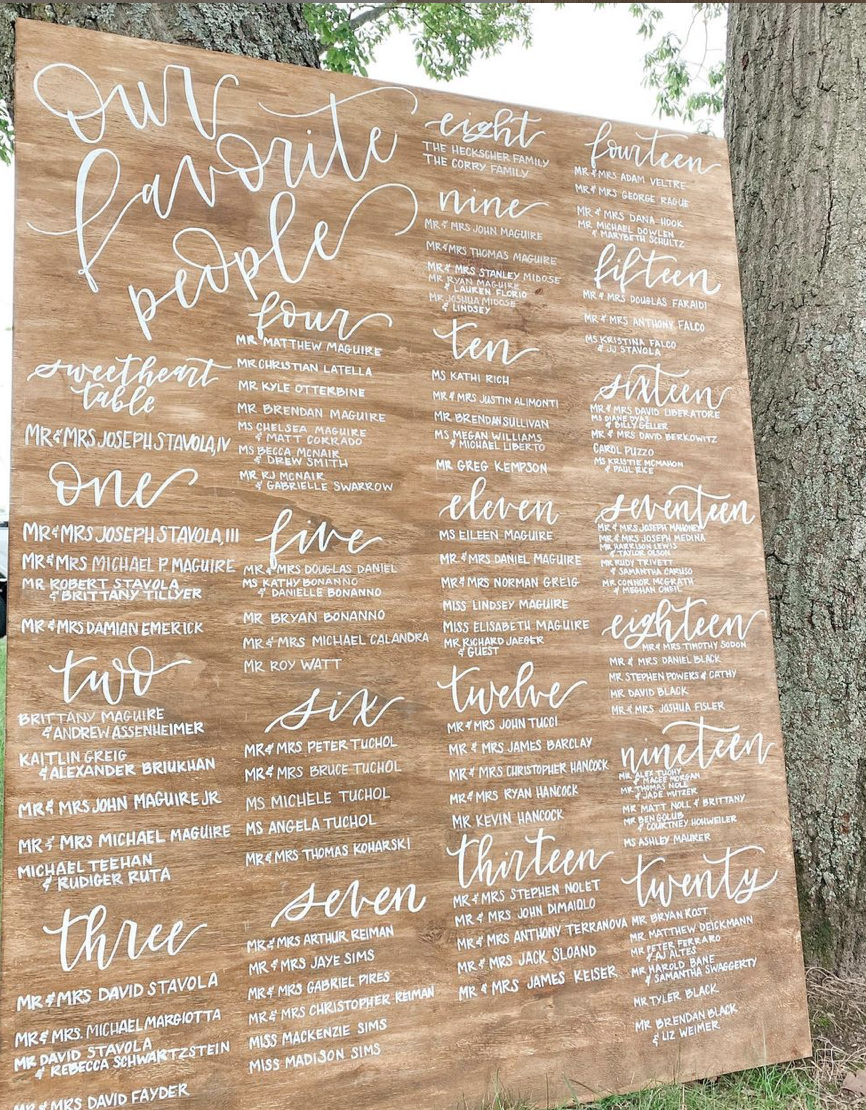 our
favorite
people
sweetheart
table
MR & MRS JOSEPH STAVOLA, IV
one
MR & MRS JOSEPH STAVOLA, III
MR & MRS MICHAEL P MAGUIRE
MR ROBERT STAVOLA
& BRITTANY TILLYER
MR & MRS DAMIAN EMERICK
two
BRITTANY MAGUIRE
& ANDREW ASSENHEIMER
KAITLIN GREIG
& ALEXANDER BRIUKHAN
MR & MRS JOHN MAGUIRE JR
MR & MRS MICHAEL MAGUIRE
MICHAEL TEEHAN
& RUDIGER RUTA
three
MR & MRS DAVID STAVOLA
MR & MRS. MICHAEL MARGIOTTA
MR DAVID STAVOLA
& REBECCA SCHWARTZSTEIN
MR & MRS DAVID FAYDER
four
MR MATTHEW MAGUIRE
MR CHRISTIAN LATELLA
MR KYLE OTTERBINE
MR BRENDAN MAGUIRE
MS CHELSEA MAGUIRE
& MATT CORRADO
MS BECCA MCNAIR
& DREW SMITH
MR RJ MCNAIR
& GABRIELLE SWARROW
five
MR & MRS DOUGLAS DANIEL
MS KATHY BONANNO
& DANIELLE BONANNO
MR BRYAN BONANNO
MR & MRS MICHAEL CALANDRA
MR ROY WATT
six
MR & MRS PETER TUCHOL
MR & MRS BRUCE TUCHOL
MS MICHELE TUCHOL
MS ANGELA TUCHOL
MR & MRS THOMAS KOHARSKI
seven
MR & MRS ARTHUR REIMAN
MR & MRS JAYE SIMS
MR & MRS GABRIEL PIRES
MR & MRS CHRISTOPHER REIMAN
MISS MACKENZIE SIMS
MISS MADISON SIMS
eight
THE HECKSCHER FAMILY
THE CORRY FAMILY
nine
MR & MRS JOHN MAGUIRE
MR & MRS THOMAS MAGUIRE
MR & MRS STANLEY MIDOSE
MR RYAN MAGUIRE
& LAUREN FLORIO
MR JOSHUA MIDOSE
& LINDSEY
ten
MS KATHI RICH
MR & MRS JUSTIN ALIMONTI
MR BRENDAN SULLIVAN
MS MEGAN WILLIAMS
& MICHAEL LIBERTO
MR GREG KEMPSON
eleven
MS EILEEN MAGUIRE
MR & MRS DANIEL MAGUIRE
MR & MRS NORMAN GREIG
MISS LINDSEY MAGUIRE
MISS ELISABETH MAGUIRE
MR RICHARD JAEGER
& GUEST
twelve
MR & MRS JOHN TUCCI
MR & MRS JAMES BARCLAY
MR & MRS CHRISTOPHER HANCOCK
MR & MRS RYAN HANCOCK
MR KEVIN HANCOCK
thirteen
MR & MRS STEPHEN NOLET
MR & MRS JOHN DIMAIOLO
MR & MRS ANTHONY TERRANOVA
MR & MRS JACK SLOAND
MR & MRS JAMES KEISER
fourteen
MR & MRS ADAM VELTRE
MR & MRS GEORGE RAGUE
MR & MRS DANA HOOK
MR MICHAEL DOWLEN
& MARYBETH SCHULTZ
fifteen
MR & MRS DOUGLAS FARAIDI
MR & MRS ANTHONY FALCO
MS KRISTINA FALCO
& JJ STAVOLA
sixteen
MR & MRS DAVID LIBERATORE
MS DIANE DYAS
& BILLY GELLER
MR & MRS DAVID BERKOWITZ
CAROL PUZZO
MS KRISTIE MCMAHON
& PAUL RICE
seventeen
MR & MRS JOSEPH MAHONEY
MR & MRS JOSEPH MEDINA
MR HARRISON LEWIS
& TAYLOR OLSON
MR RUDY TRIVETT
& SAMANTHA CARUSO
MR CONNOR MCGRATH
& MEGHAN ONEIL
eighteen
MR & MRS TIMOTHY SODON
MR & MRS DANIEL BLACK
MR STEPHEN POWERS & CATHY
MR DAVID BLACK
MR & MRS JOSHUA FISLER
nineteen
MR ALEX TUCHY
& MACEE MORGAN
MR THOMAS NOLE
& JADE WUTZER
MR MATT NOLL & BRITTANY
MR BEN GOLUB
& COURTNEY HOHWEILER
MS ASHLEY MAURER
twenty
MR BRYAN ROST
MR MATTHEW DEICKMANN
MR PETER FERRARO
& AJ ALTES
MR HAROLD BANE
& SAMANTHA SWAGGERTY
MR TYLER BLACK
MR BRENDAN BLACK
& LIZ WEIMER